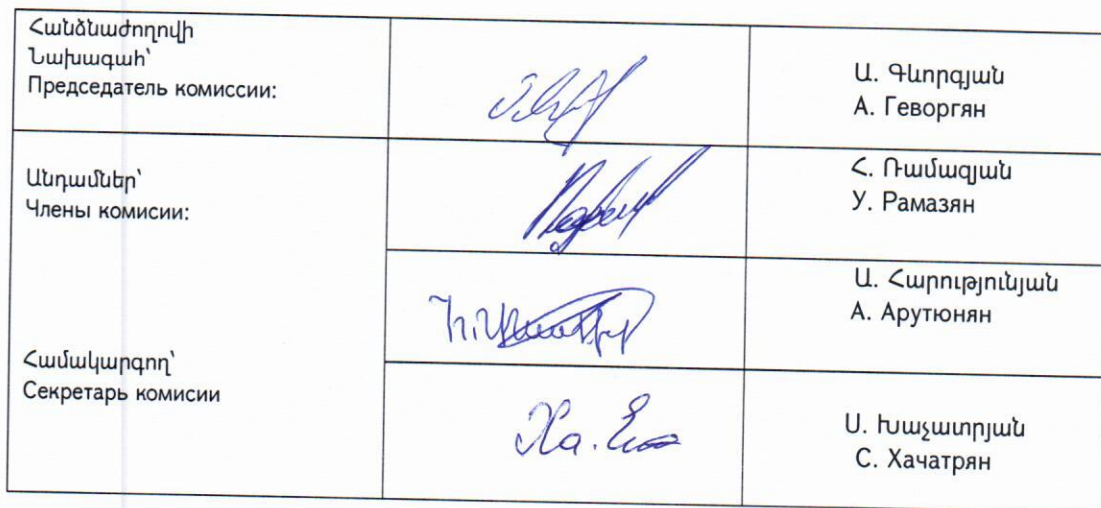 Հանձնաժողովի
Նախագահ՝
Председатель комиссии:
Ա. Գևորգյան
А. Геворгян
Անդամներ՝
Члены комисии:
Հ. Ռամազյան
У. Рамазян
Ա. Հարությունյան
А. Арутюнян
Համակարգող՝
Секретарь комисии
Ս. Խաչատրյան
С. Хачатрян